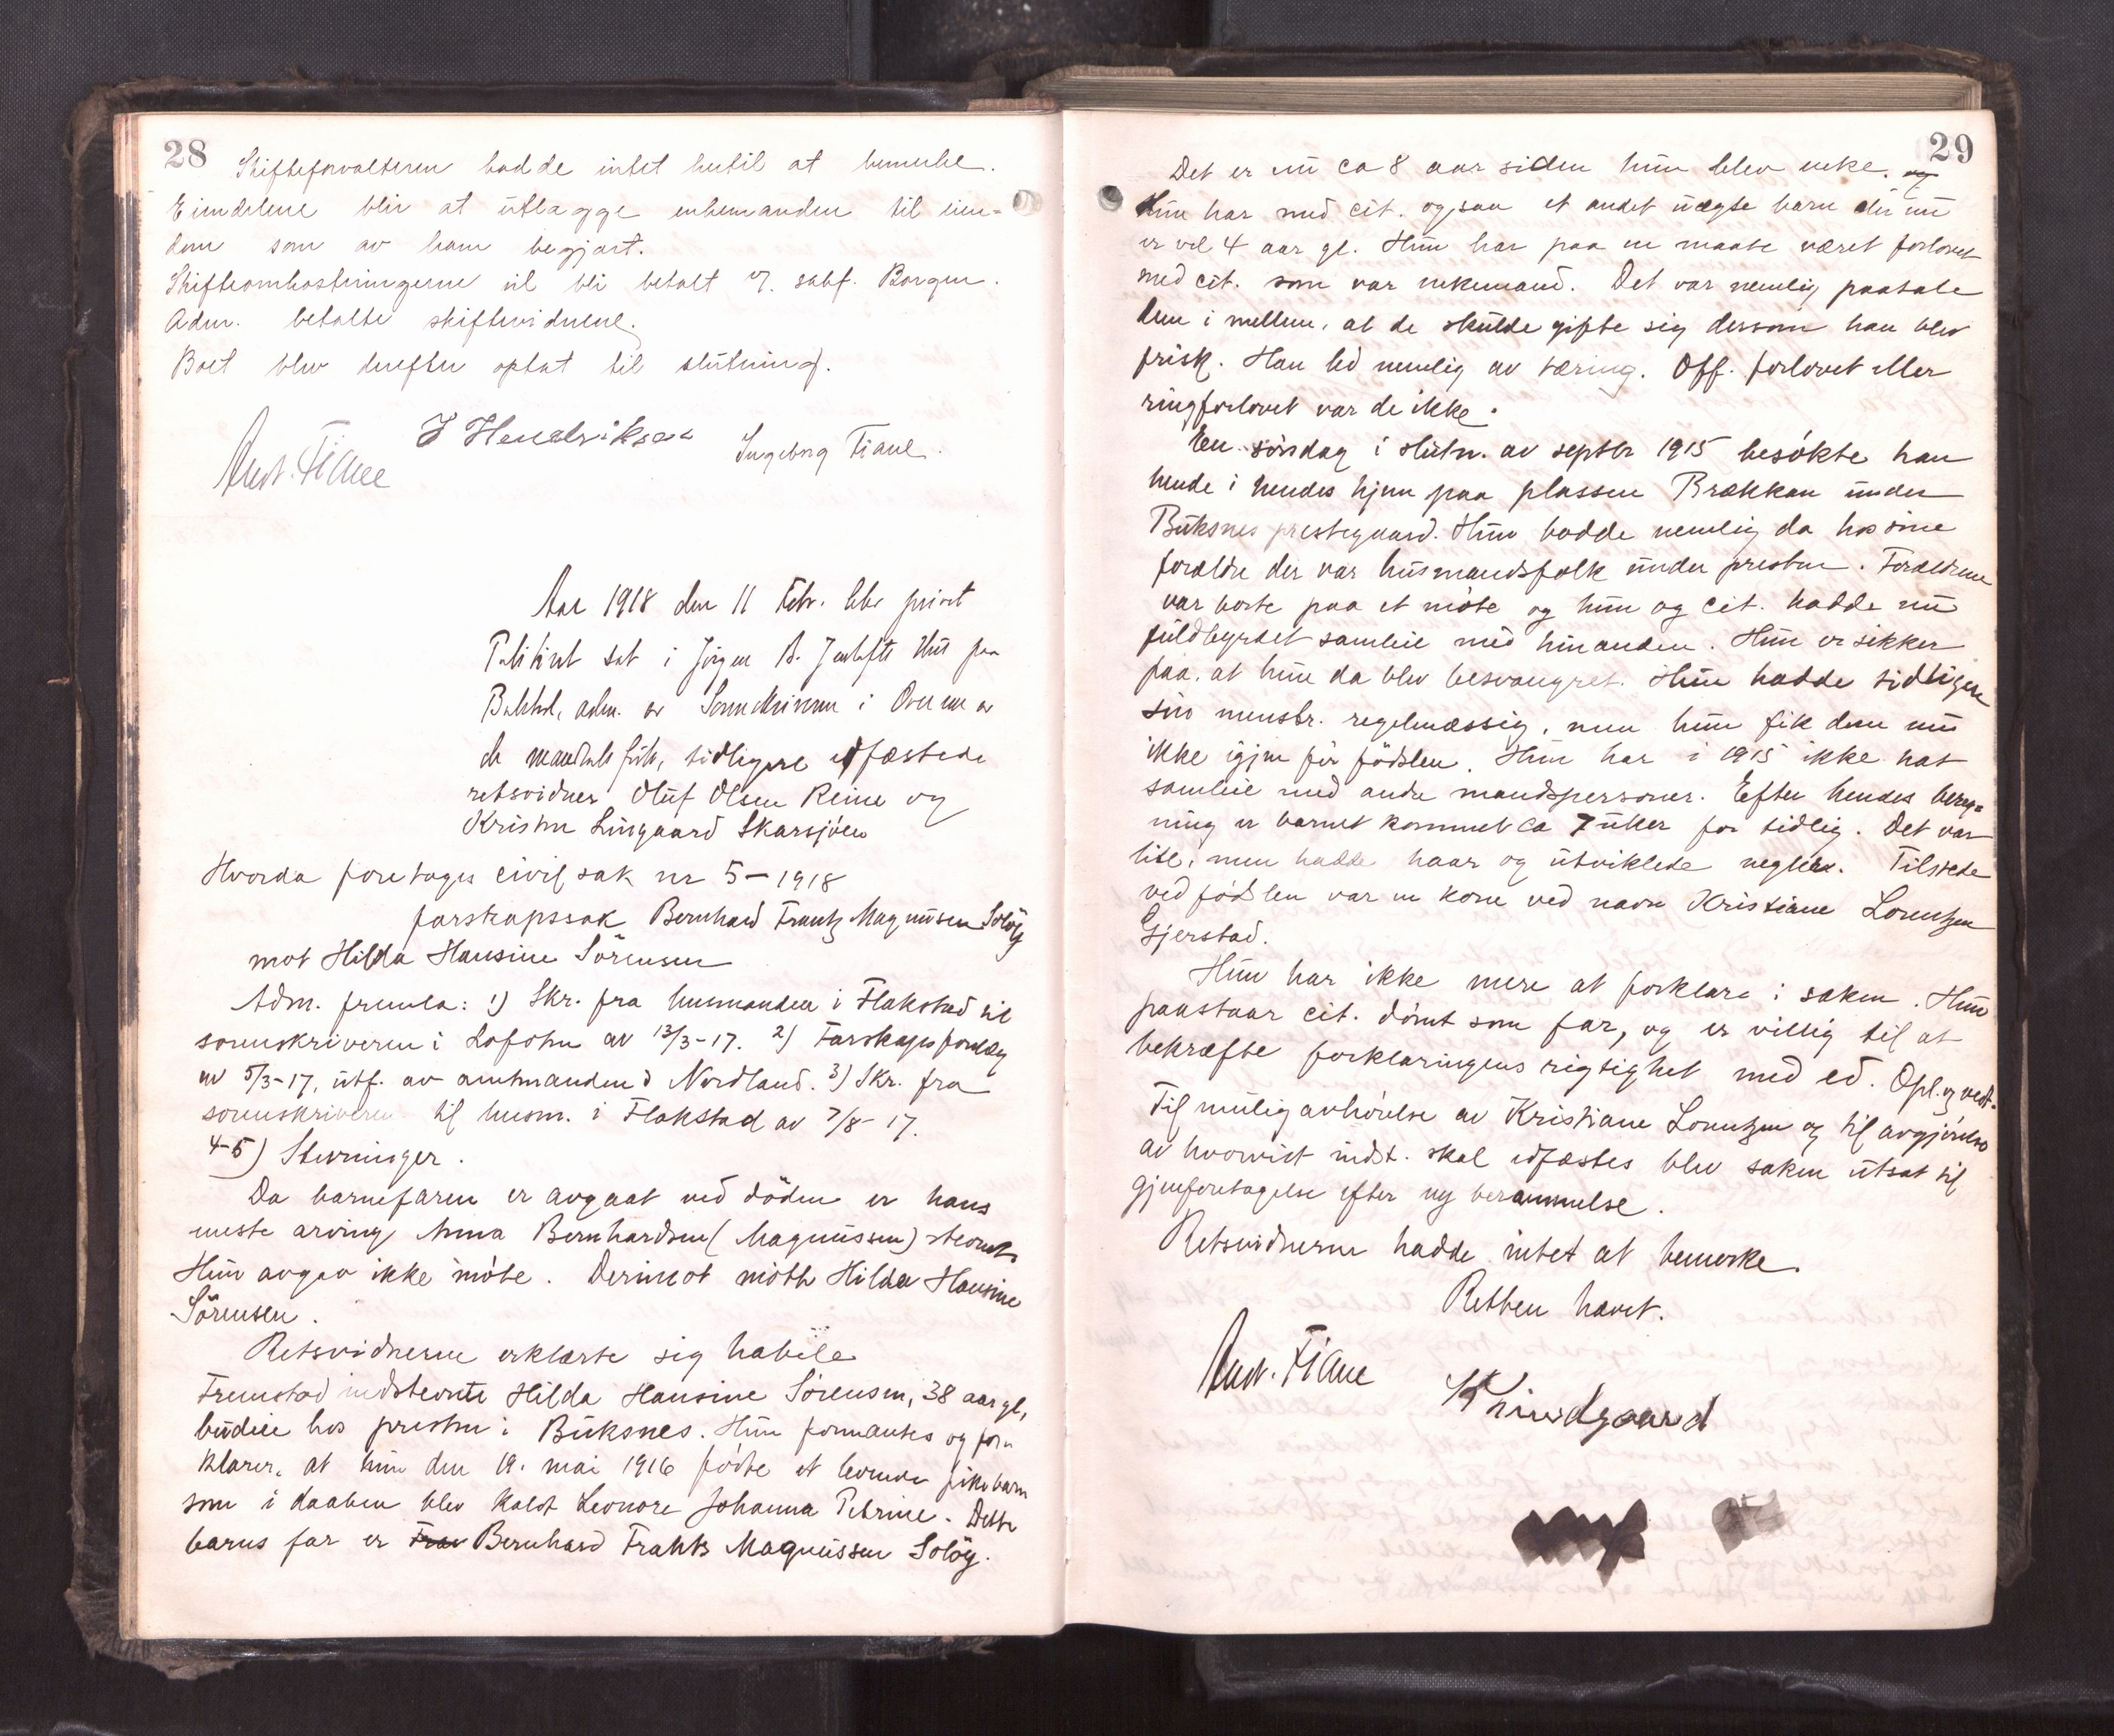 28
Skifteforvalteren hadde intet hertil at bemerke.
Eiendelene blir at utlægge enkemanden til eien-
dom som av ham begjært.
Skifteomkostningerne vil bli betalt v. sakf. Borgen.
Adm. betalte skiftevidnene.
Boet blev derefter optat til slutning.
Andr. Fiane J Hendriksen Ingeborg Fiane.
Aar 1918 den 11 Febr. blev privat
sat i Jørgen B. Hus paa
Balstad, adm. av Sorenskriveren i Overvær av
de mandtalsførte, tidligere edfæstede
retsvidner Oluf Olsen Reine og
Kristen Lingaard Skarsjøen
Hvorda foretages civil sak nr 5 – 1918
farskapssak Bernhard Frantz Magnussen Soløy
mot Hilda Hansine Sörensen
Adm. fremla: 1) Skr. fra lensmanden i Flakstad til
sorenskriveren i Lofoten av 13/3-17. 2) Farskapsforelæg
av 5/3-17, utf. av amtmanden i Nordland. 3) Skr. fra
sorenskriveren til lensm. i Flakstad av 7/8-17.
4-5) Stevninger.
Da barnefaren er avgaat ved döden er hans
neste arving Anna Bernhardsen (Magnussen) stevnet
Hun avgav ikke møte. Derimot møtte Hilda Hansine
Sörensen.
Retsvidnerne erklærte sig habile
Fremstod indstevnte Hilda Hansine Sörensen, 38 aar gl,
budeie hos presten i Buksnes. Hun formantes og for-
klarer, at hun den 19. mai 1916 fødte et levende pikebarn
som i daaben blev kaldt Leonore Johanna Petrine. Dette
barns far er Fran Bernhard Frantz Magnussen Soløy.
29
Det er nu ca 8 aar siden hun blev enke. og
Hun har med cit. ogsaa et andet uægte barn der nu
er vel 4 aar gl. Hun har paa en maate været forlovet
med cit. som var enkemand. Det var nemlig paatale
dem i mellem, at de skulde gifte sig dersom han blev
frisk. Han led nemlig av tæring. Off. forlovet eller
ringforlovet var de ikke.
En søndag i slutn. av septbr 1915 besøkte han
hende i hendes hjem paa plassen Brækkan under
Buksnes prestegaard. Hun bodde nemlig da hos sine
forældre der var husmandsfolk under presten. Forældrene
var borte paa et møte og hun og cit. hadde nu
fuldbyrdet samleie med hinanden. Hun er sikker
paa, at hun da blev besvangret. Hun hadde tidligere
sin menstr. regelmæssig, men hun fik dem nu
ikke igjen før fødslen. Hun har i 1915 ikke hat
samleie med andre mandspersoner. Efter hendes bereg-
ning er barnet kommet ca 7 uker for tidlig. Det var
lite, men hadde haar og utviklede negler. Tilstede
ved fødslen var en kone ved navn Kristiane Lorentzen
Gjerstad.
Hun har ikke mere at forklare i saken. Hun
paastaar cit. dømt som far, og er villig til at
bekræfte forklaringens rigtighet med ed. Opl. og vedt.
Til mulig avhørelse av Kristiane Lorentzen og til avgjørelse
av hvorvidt indst. skal edfæstes blev saken utsat til
gjenforetagelse efter ny berammelse.
Retsvidnerne hadde intet at bemerke.
Retten hævet.
Andr. Fiane